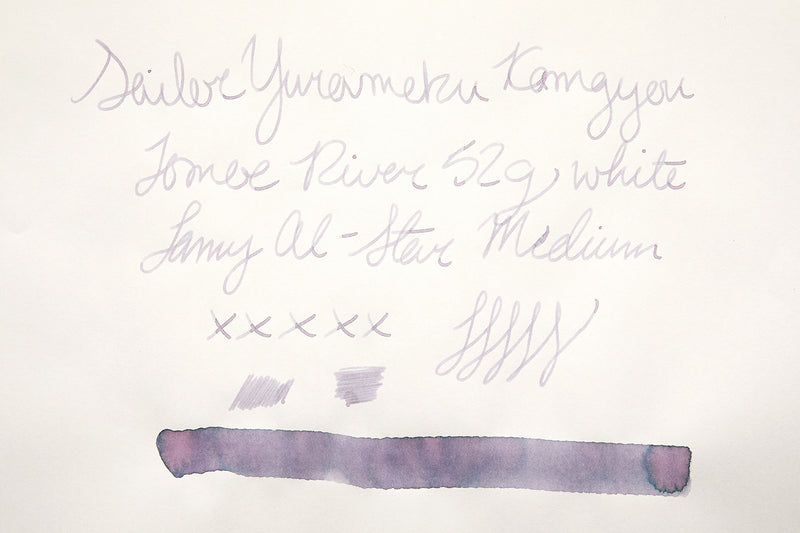 Sailor Yurameku Kamgyou
Tomoe River 52g white
Lamy Al-Star Medium
x x x x x